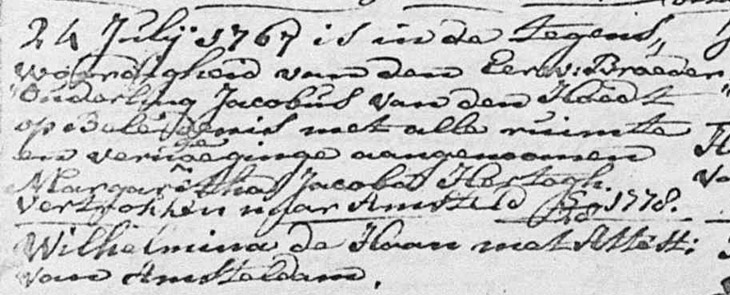 24 Julij 1767 is in de tegens„
woordigheid van den Eerw: Broeder
Ouderling Jacobus van den Hoedt
op Belijdenis met alle ruimte
en vernoeginge aangenoomen
Margaretha Jacoba Hertogh.
vertrokken naar Amsteld 1778.
Wilhelmina de Haan met Attest:
van Amsteldam.